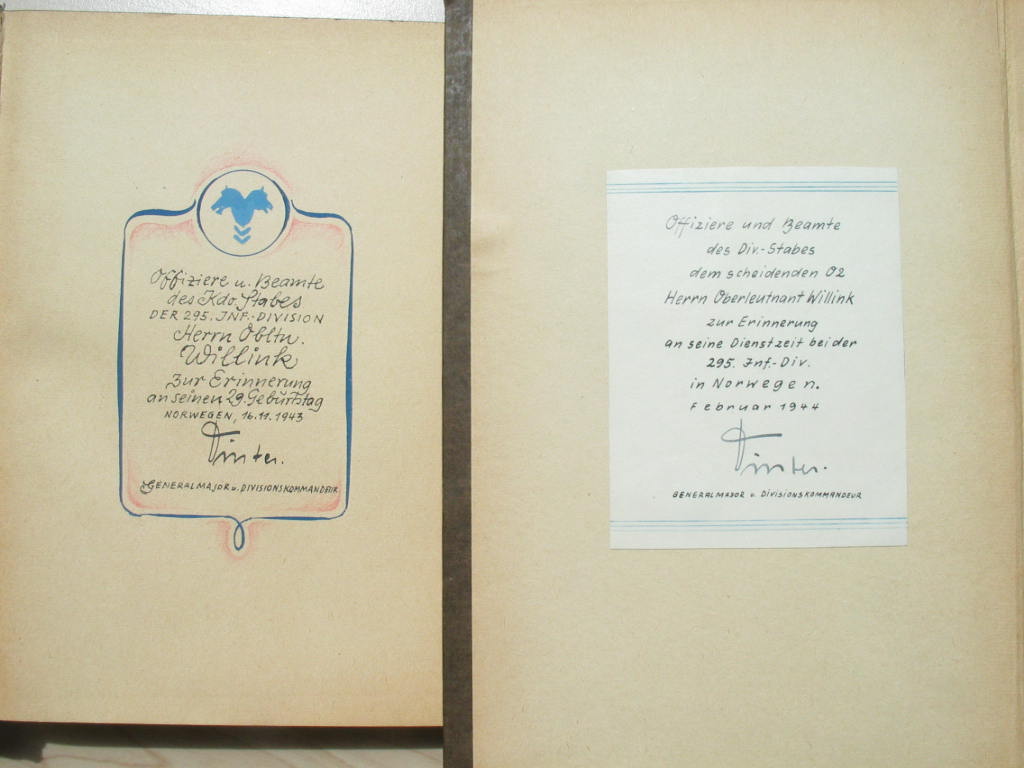 Offiziere u. Beamte
des Kdo. Stabes
DER 295. INF.-DIVISION
Herrn Obltn.
Willink
Zur Erinnerung
an seinen 29. Geburtstag
NORWEGEN, 16.11.1943
GENERALMAJOR u. DIVISIONSKOMMANDEUR
Offiziere und Beamte
des Div.-Stabes
dem scheidenden O2
Herrn Oberleutnant Willink
zur Erinnerung
an seine Dienstzeit bei der
295. Inf.-Div.
in Norwegen.
Februar 1944
GENERALMAJOR u. DIVISIONSKOMMANDEUR